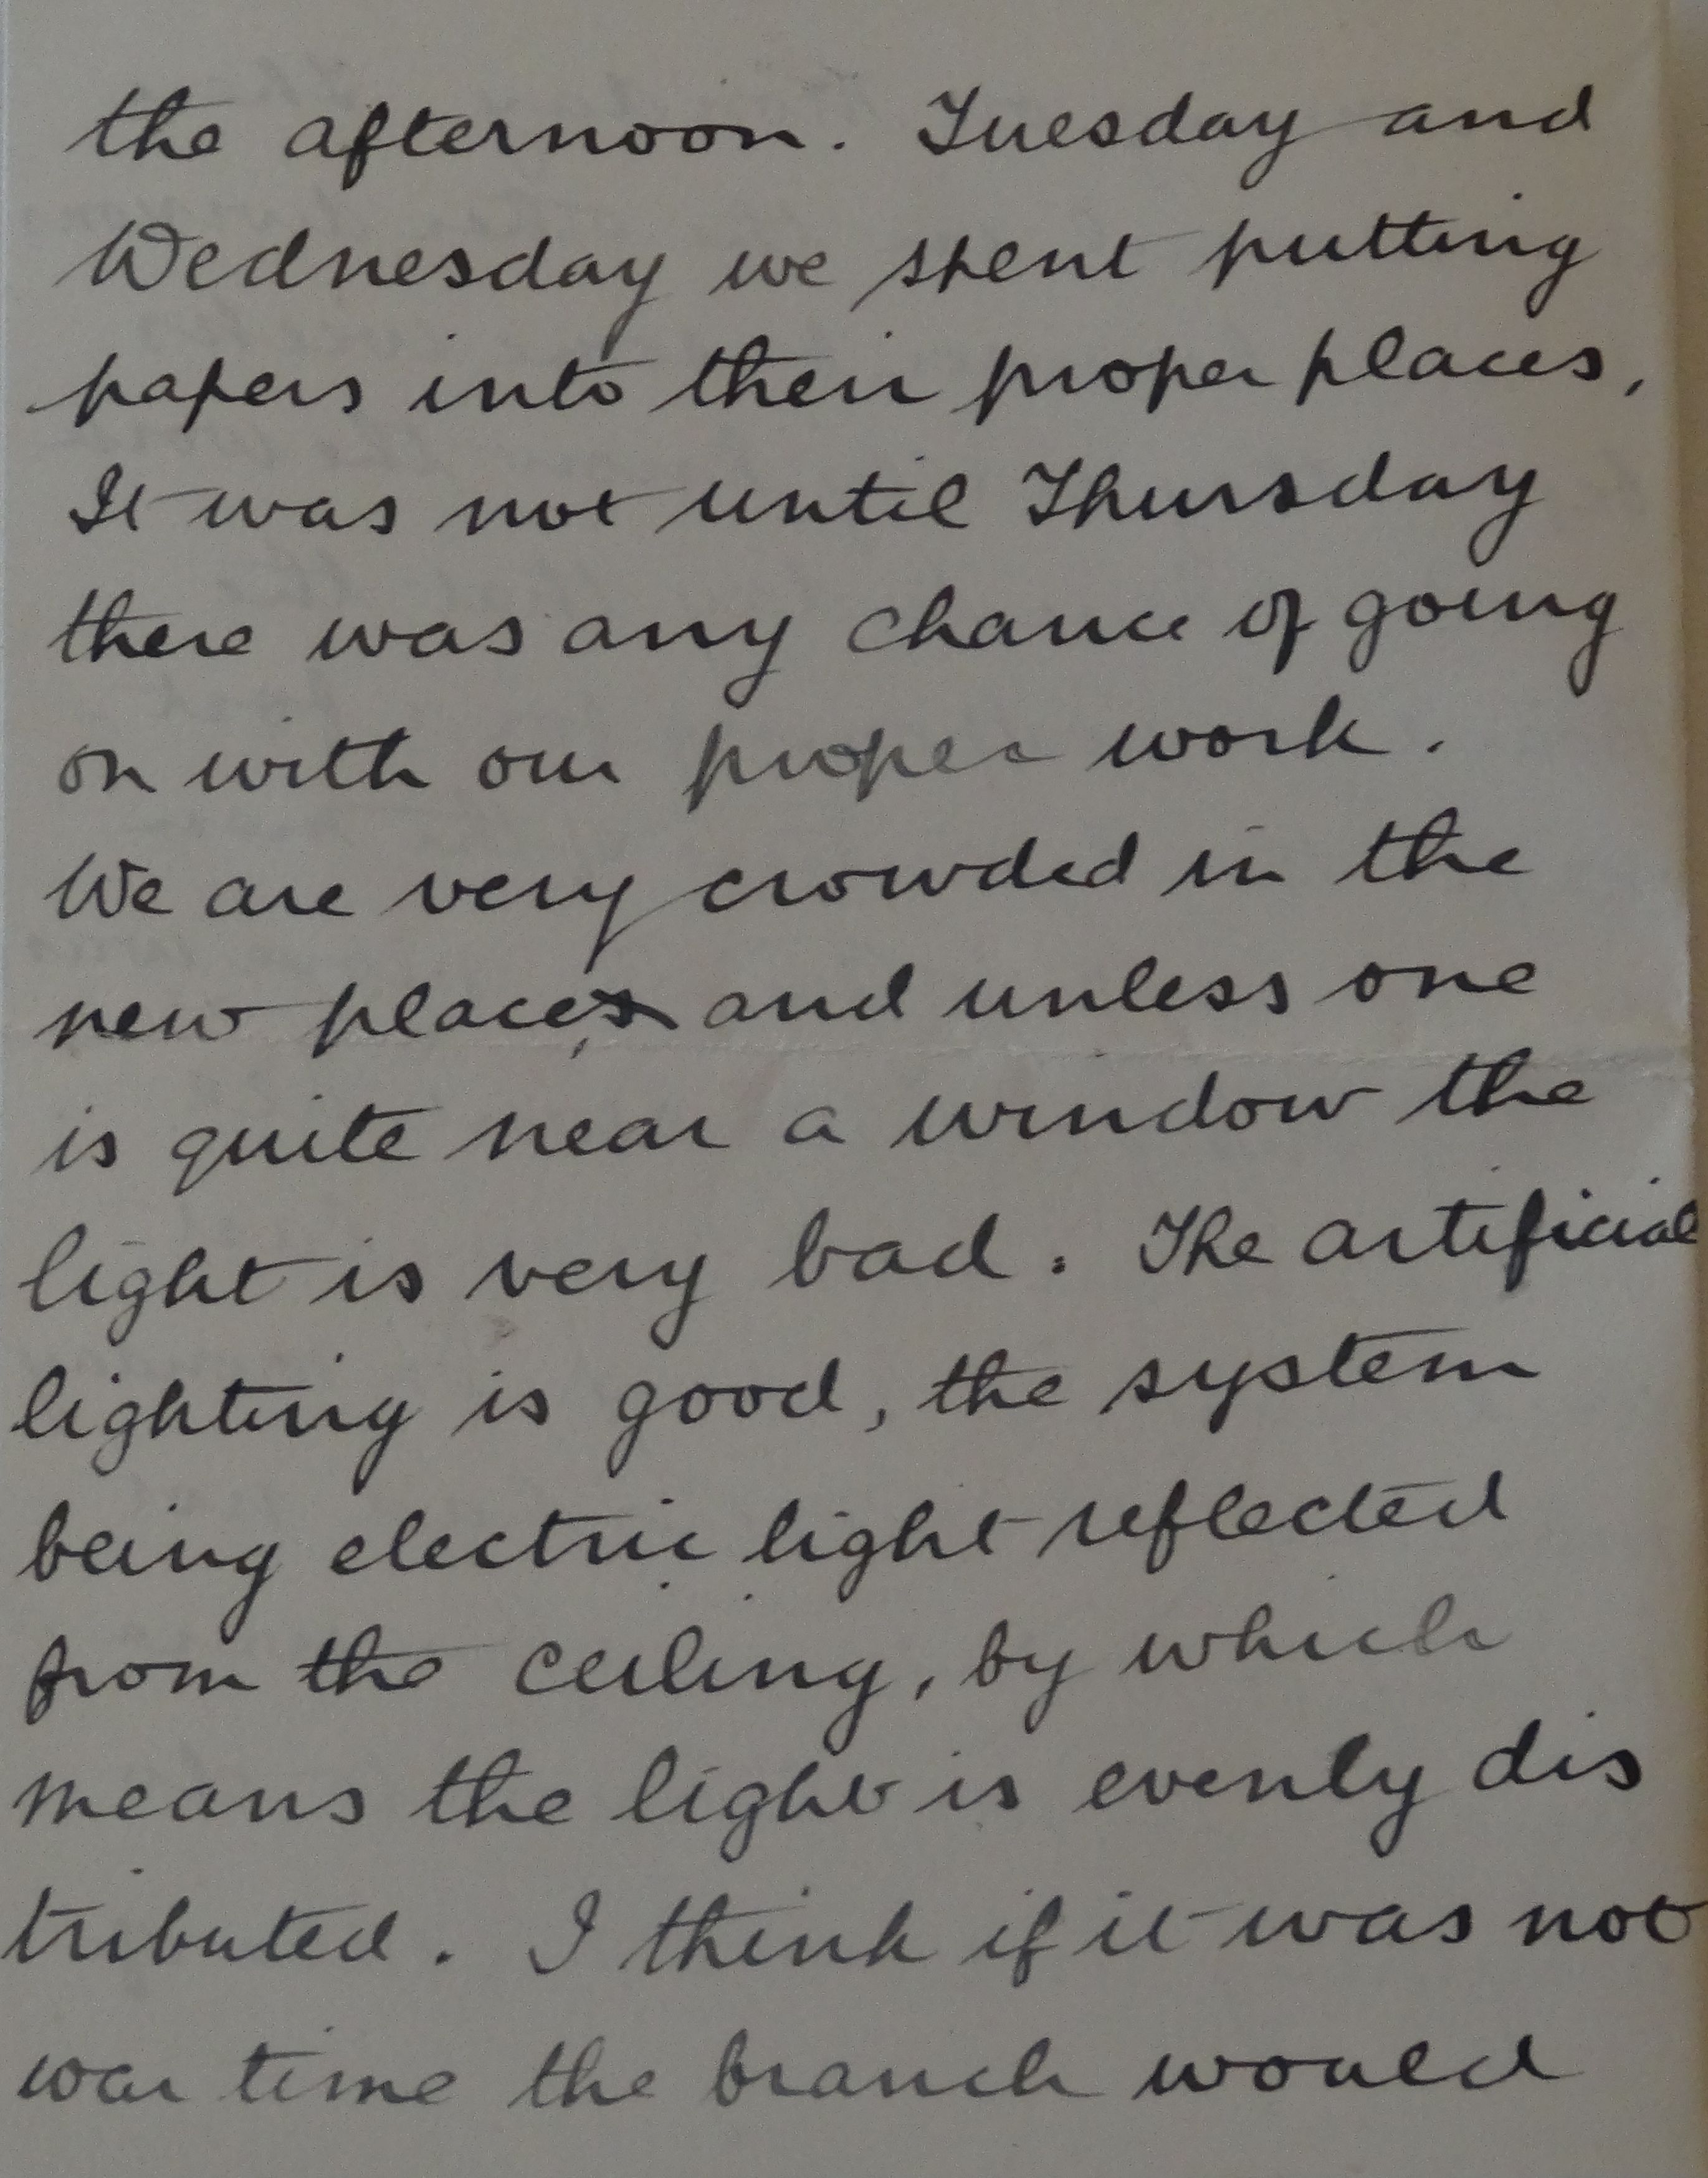 the afternoon. Tuesday and
Wednesday we spent putting
papers into their proper places,
It was not until Thursday
there was any chance of going
on with our proper work.
We are very crowded in the
new place, and unless one
is quite near a window the
light is very bad. The artificial
lighting is good, the system
being electric light reflected
from the ceiling, by which
means the light is evenly dis
tributed. I think if it was not
war time the branch would